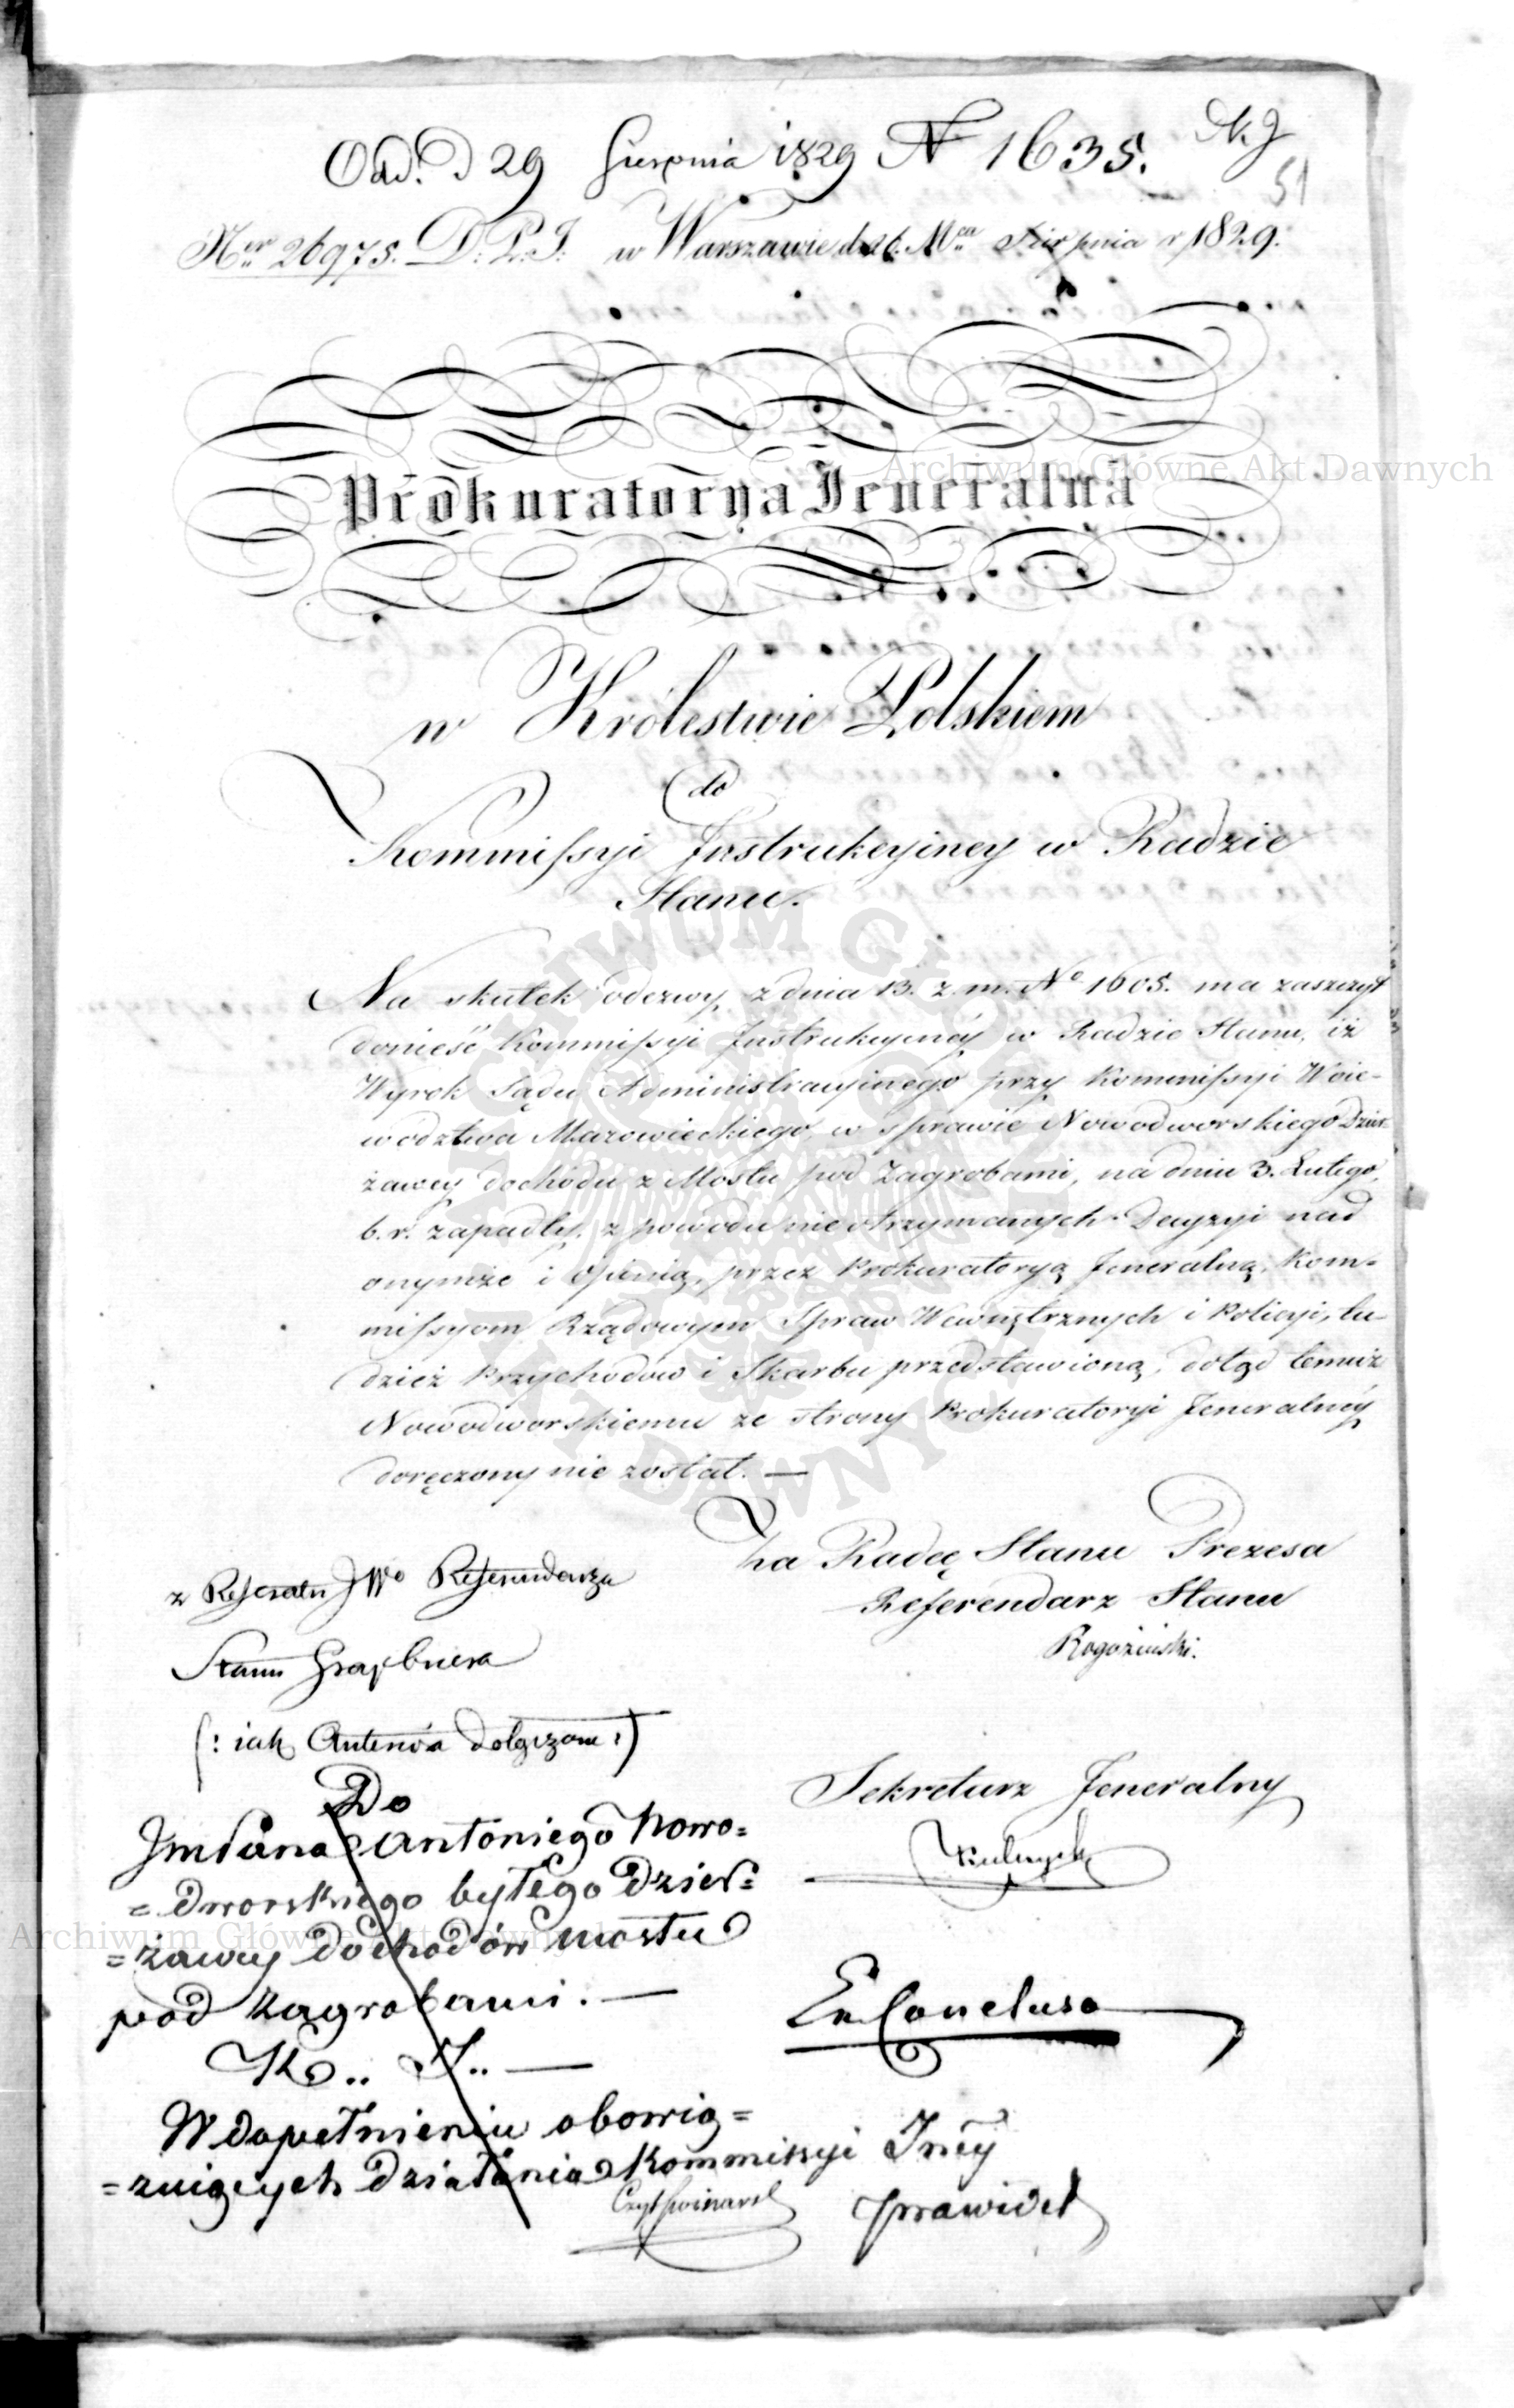 Odd. D 29 Sierpnia 1829 N 1635.
51
Ner 26975. D. P. J. w Warszawie d. 26. Mca Sierpnia r. 1829.
Prokuratorya Jeneralna
w Królestwie Polskiem
do
Kommissyi Instrukcyiney w Radzie
Stanu.
Na skutek odezwy z dnia 13. z. m. No 1605. ma zaszczyt
donieść Kommissyi Instrukcyiney w Radzie Stanu, iż
Wyrok Sądu Administracyinego przy Kommissyi Woie-
wodztwa Mazowieckiego, w sprawie Nowodworskiego Dzier-
żawcy dochódu z Mostu pod Zagrobami, na dniu 3. Lutego,
b. r. zapadły, z powodu nieotrzymanych Decyzyi nad
onymże i Opinią, przez Prokuratoryą Jeneralną, Kom-
missyom Rządowym Spraw Wewnętrznych i Policyi, tu-
dzież Przychodów i Skarbu przedstawioną, dotąd temuż
Nowodworskiemu ze strony Prokuratoryi Jeneralnéy
doręczony nie został. —
Za Radcę Stanu Prezesa
Referendarz Stanu
Rogoziński.
z Referatu JWo Referendarza
Stanu Graybnera
(: iak Antenra dołączone :)
Sekretarz Jeneralny
Do
JmPana Antoniego Nowo=
=dworskiego byłego Dzier=
=żawcy Dochodów mostu
pod Zagrobami. —
K.. J.. —
Ex Concluso
W dopełnieniu obowią=
=zuiących działania Kommissyi Inéy
prawideł
Archiwum Główne Akt Dawnych
Archiwum Główne Akt Dawnych
ARCHIWUM GŁÓWNE AKT DAWNYCH